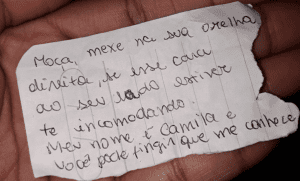 Moça, mexe na sua orelha
direita, se esse cara
ao seu lado estiver
te incomodando.
Meu nome é Camila e
você pode fingir que me conhece